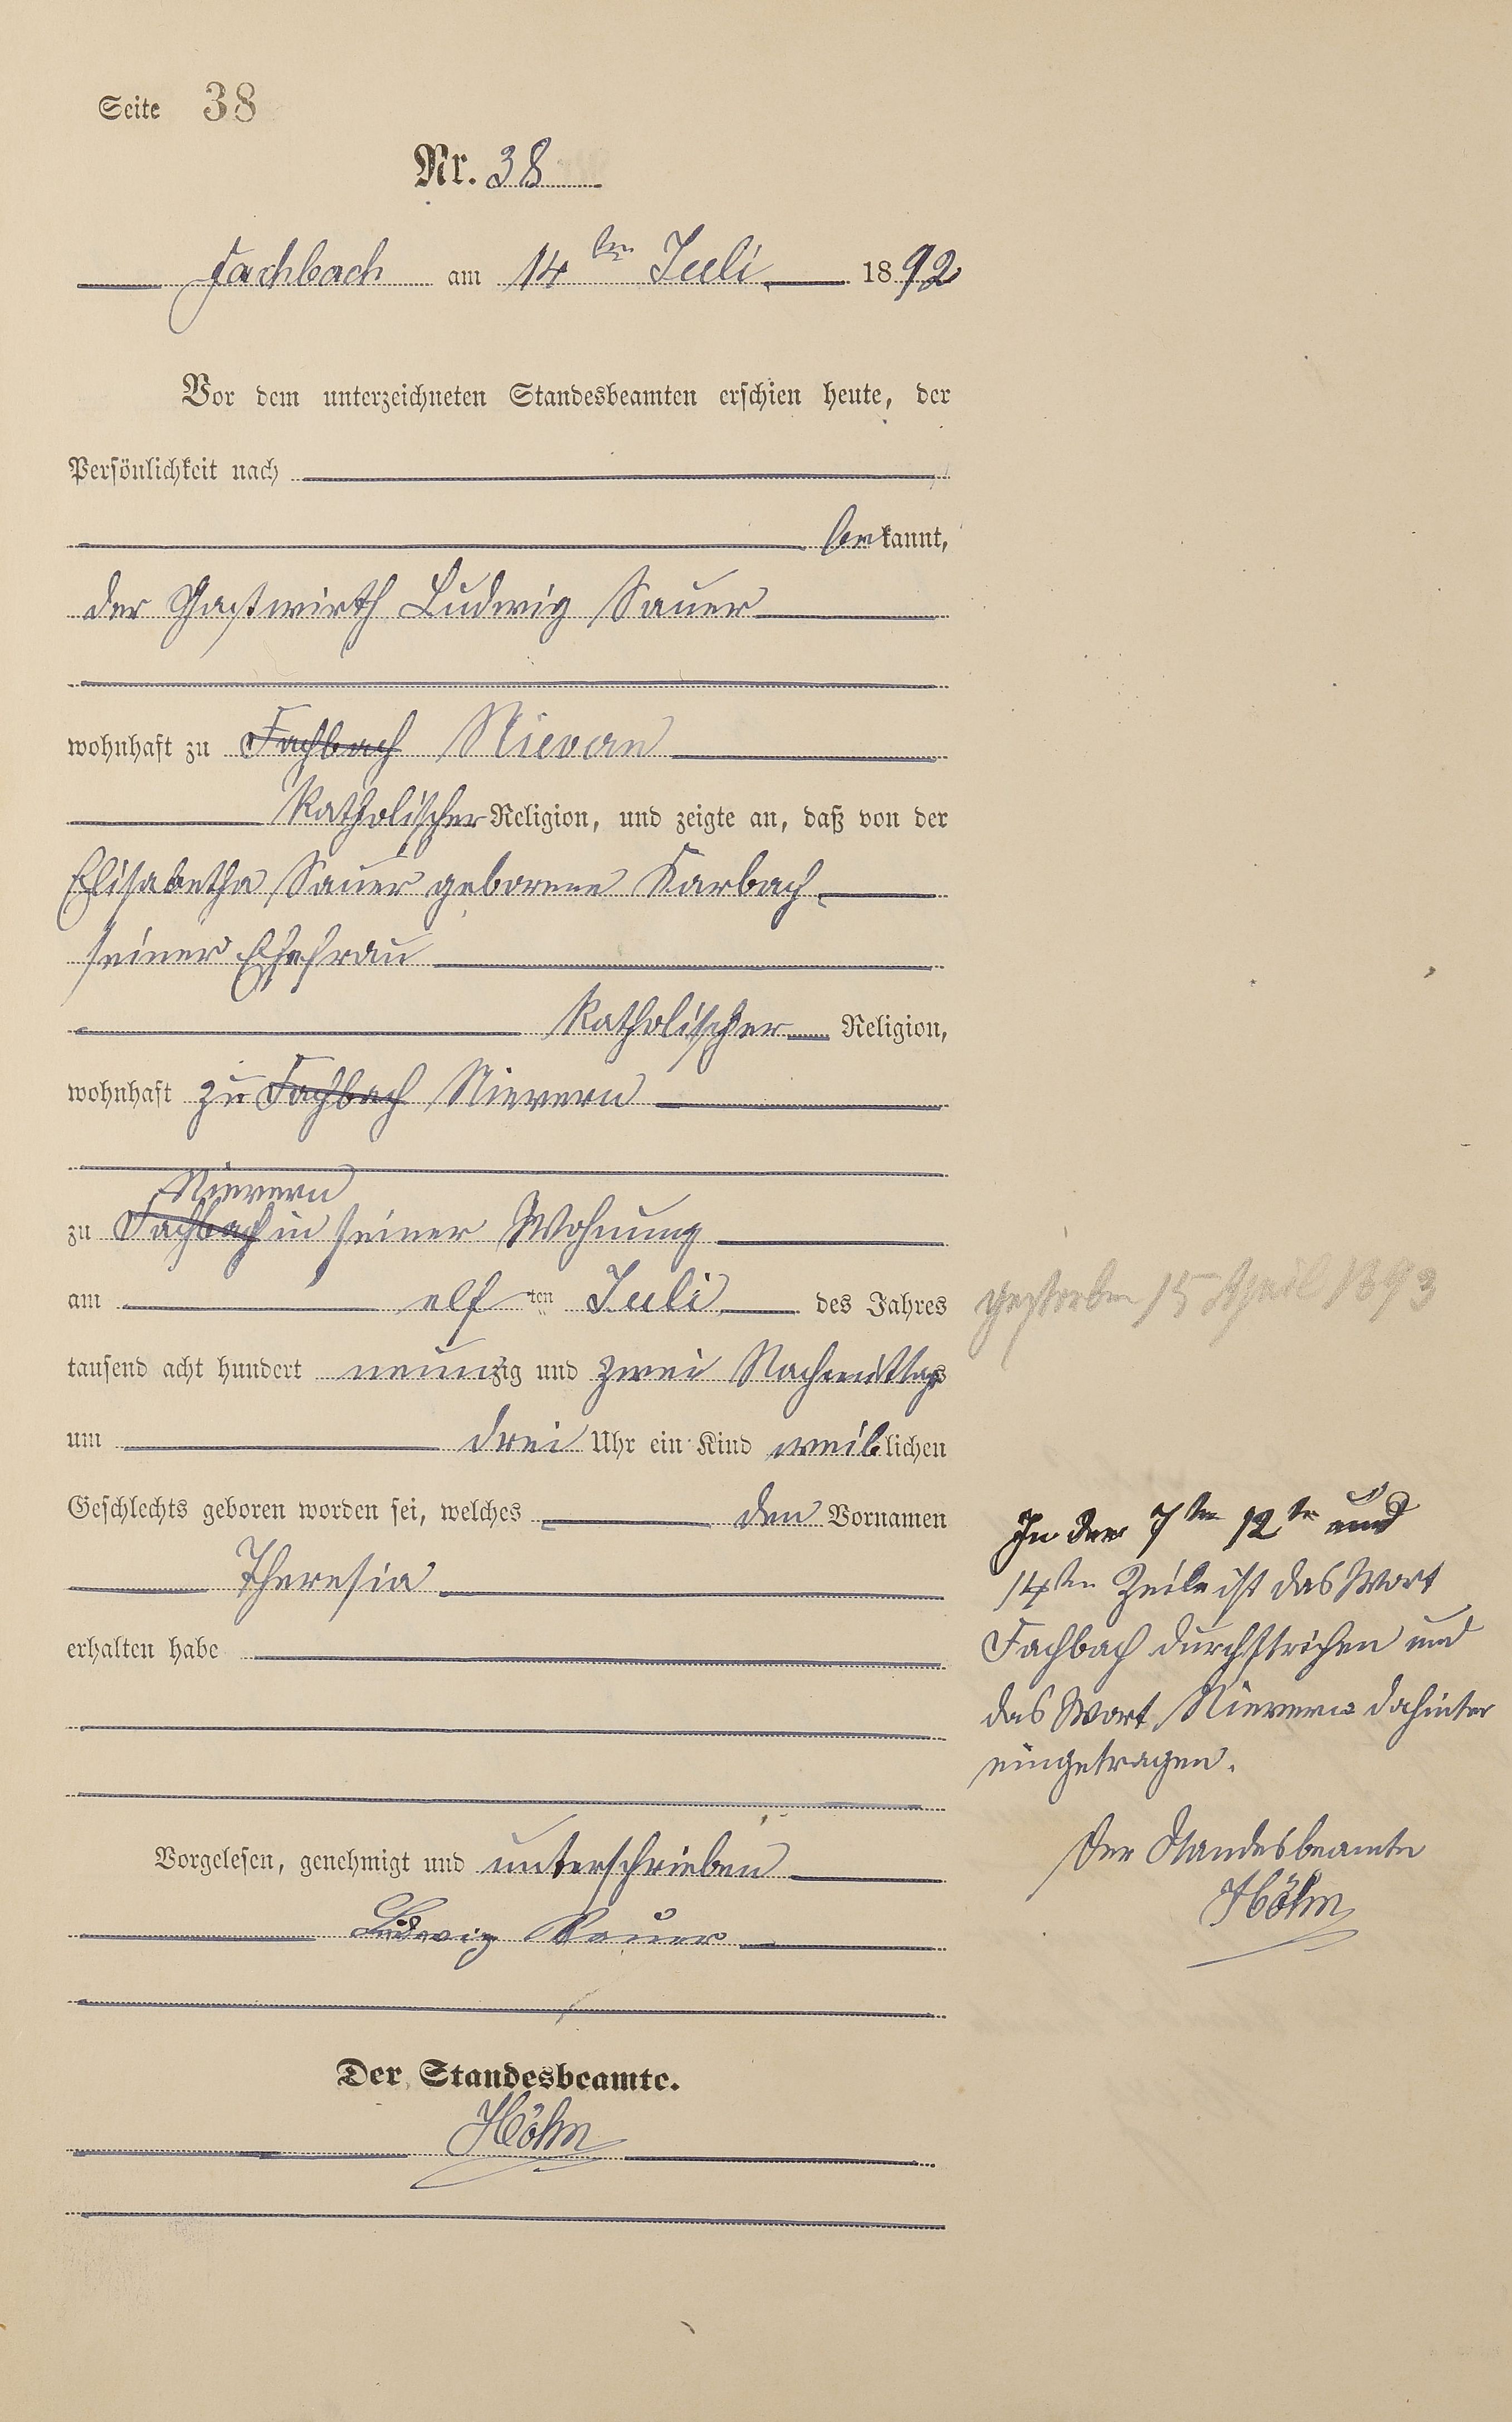 Seite 38
Nr. 38
Fachbach am 14ten Juli 1892
Vor dem unterzeichneten Standesbeamten erschien heute, der
Persönlichkeit nach
bekannt,
der Gastwirth Ludwig Sauer
wohnhaft zu Fachbach Nievern
Katholischer Religion, und zeigte an, daß von der
Elisabetha Sauer geborene Karbach
seiner Ehefrau
Katholischer Religion,
wohnhaft zu Fachbach Nievern
Nievern
zu Fachbach in seiner Wohnung
am elf ten Juli des Jahres
tausend acht hundert neunzig und zwei Nachmittags
um drei Uhr ein Kind weiblichen
Geschlechts geboren worden sei, welches den Vornamen
Theresia
erhalten habe
Vorgelesen, genehmigt und unterschrieben
Ludwig Sauer
Der Standesbeamte.
Höhn
gestorben 15 April 1893
In der 7ten 12ten und
14ten Zeile ist das Wort
Fachbach durchstrichen und
das Wort Nievern dahinter
eingetragen.
Der Standesbeamte
Höhn